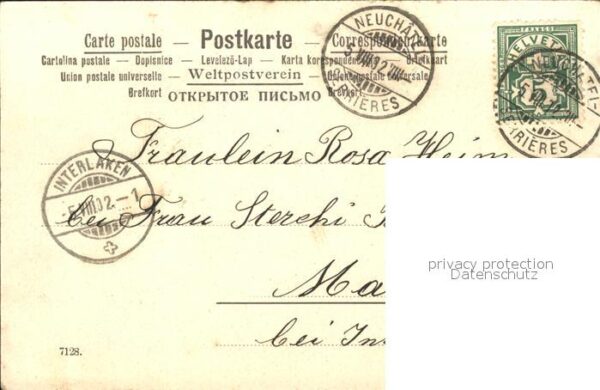 Carte postale — Postkarte — Correspondenzkarte
Cartolina postale — Dopisnice — Levelező-Lap — Karta korespondencyjna — Briefkart
Union postale universelle — Weltpostverein — Unione postale universale
Brefkort Brefkort
ОТКРЫТОЕ ПИСЬМО
NEUCHÂTEL
5.VIII.02.VII.
BRIÈRES
HELVETIA
FRANCO
5
NEUCHATEL
BRIÈRES
INTERLAKEN
5.VIII.02.–1
Fräulein Rosa Heim
bei Frau Sterchi
Ma
bei In
privacy protection
Datenschutz
7128.